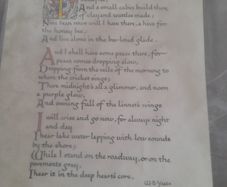 And a small cabin build there,
of clay and wattles made:
Nine bean rows will I have there, a hive for
the honey bee,
And live alone in the bee-loud glade.
And I shall have some peace there, for
peace comes dropping slow,
Dropping from the veils of the morning to
where the cricket sings;
There midnight's all a glimmer, and noon
a purple glow,
And evening full of the linnet's wings
I will arise and go now, for always night
and day
I hear lake water lapping with low sounds
by the shore;
While I stand on the roadway, or on the
pavements gray,
I hear it in the deep hearts core.
W.B. Yeats